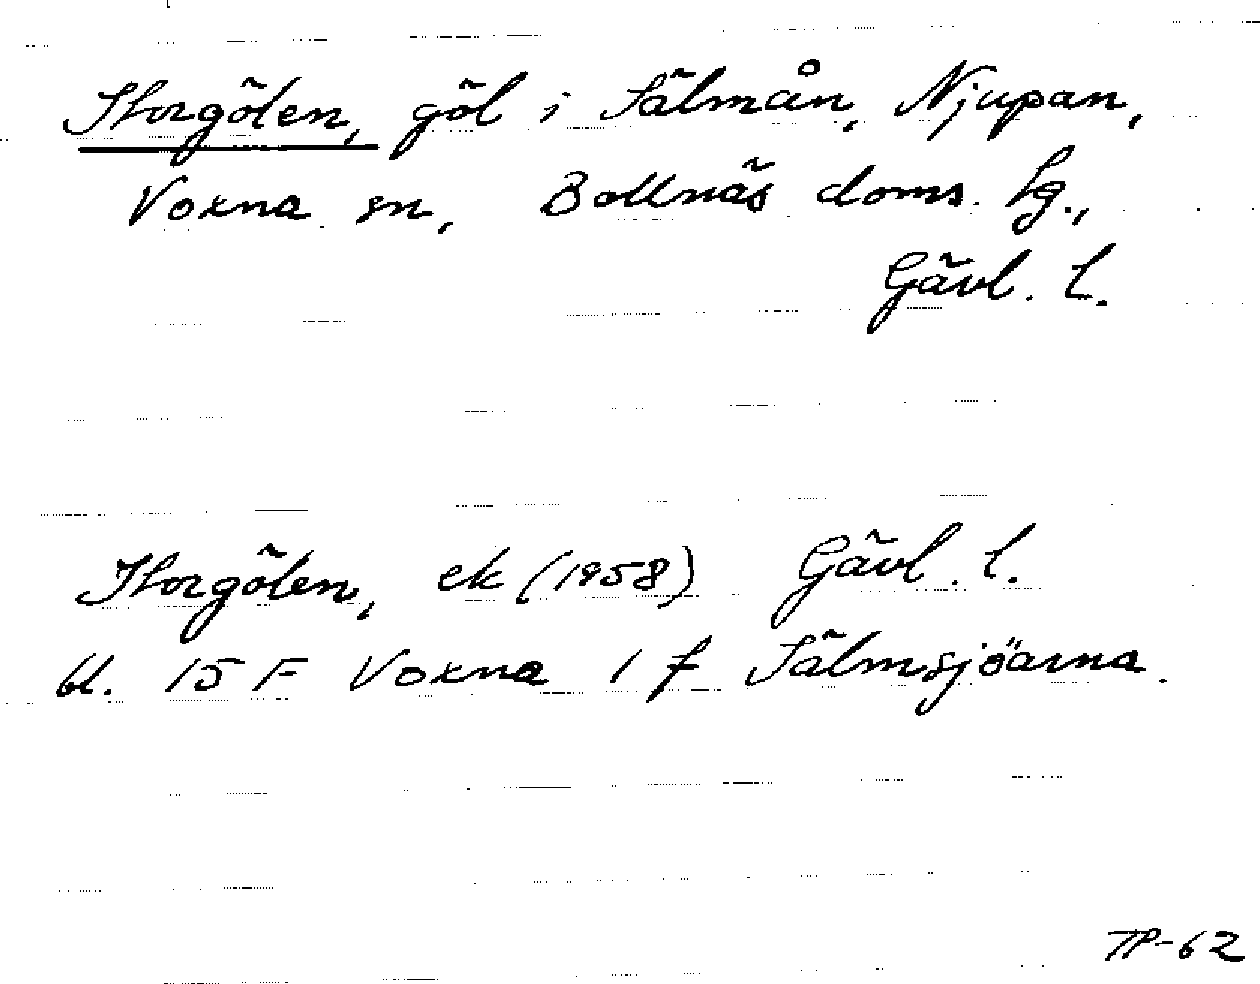 Storgölen, göl i Sälmån, Njupan,
Voxna sn, Bollnäs doms. hg.,
Gävl. l.
Storgölen, ek (1958) Gävl. l.
bl. 15 F Voxna 1 f Sälmsjöarna.
TP-62